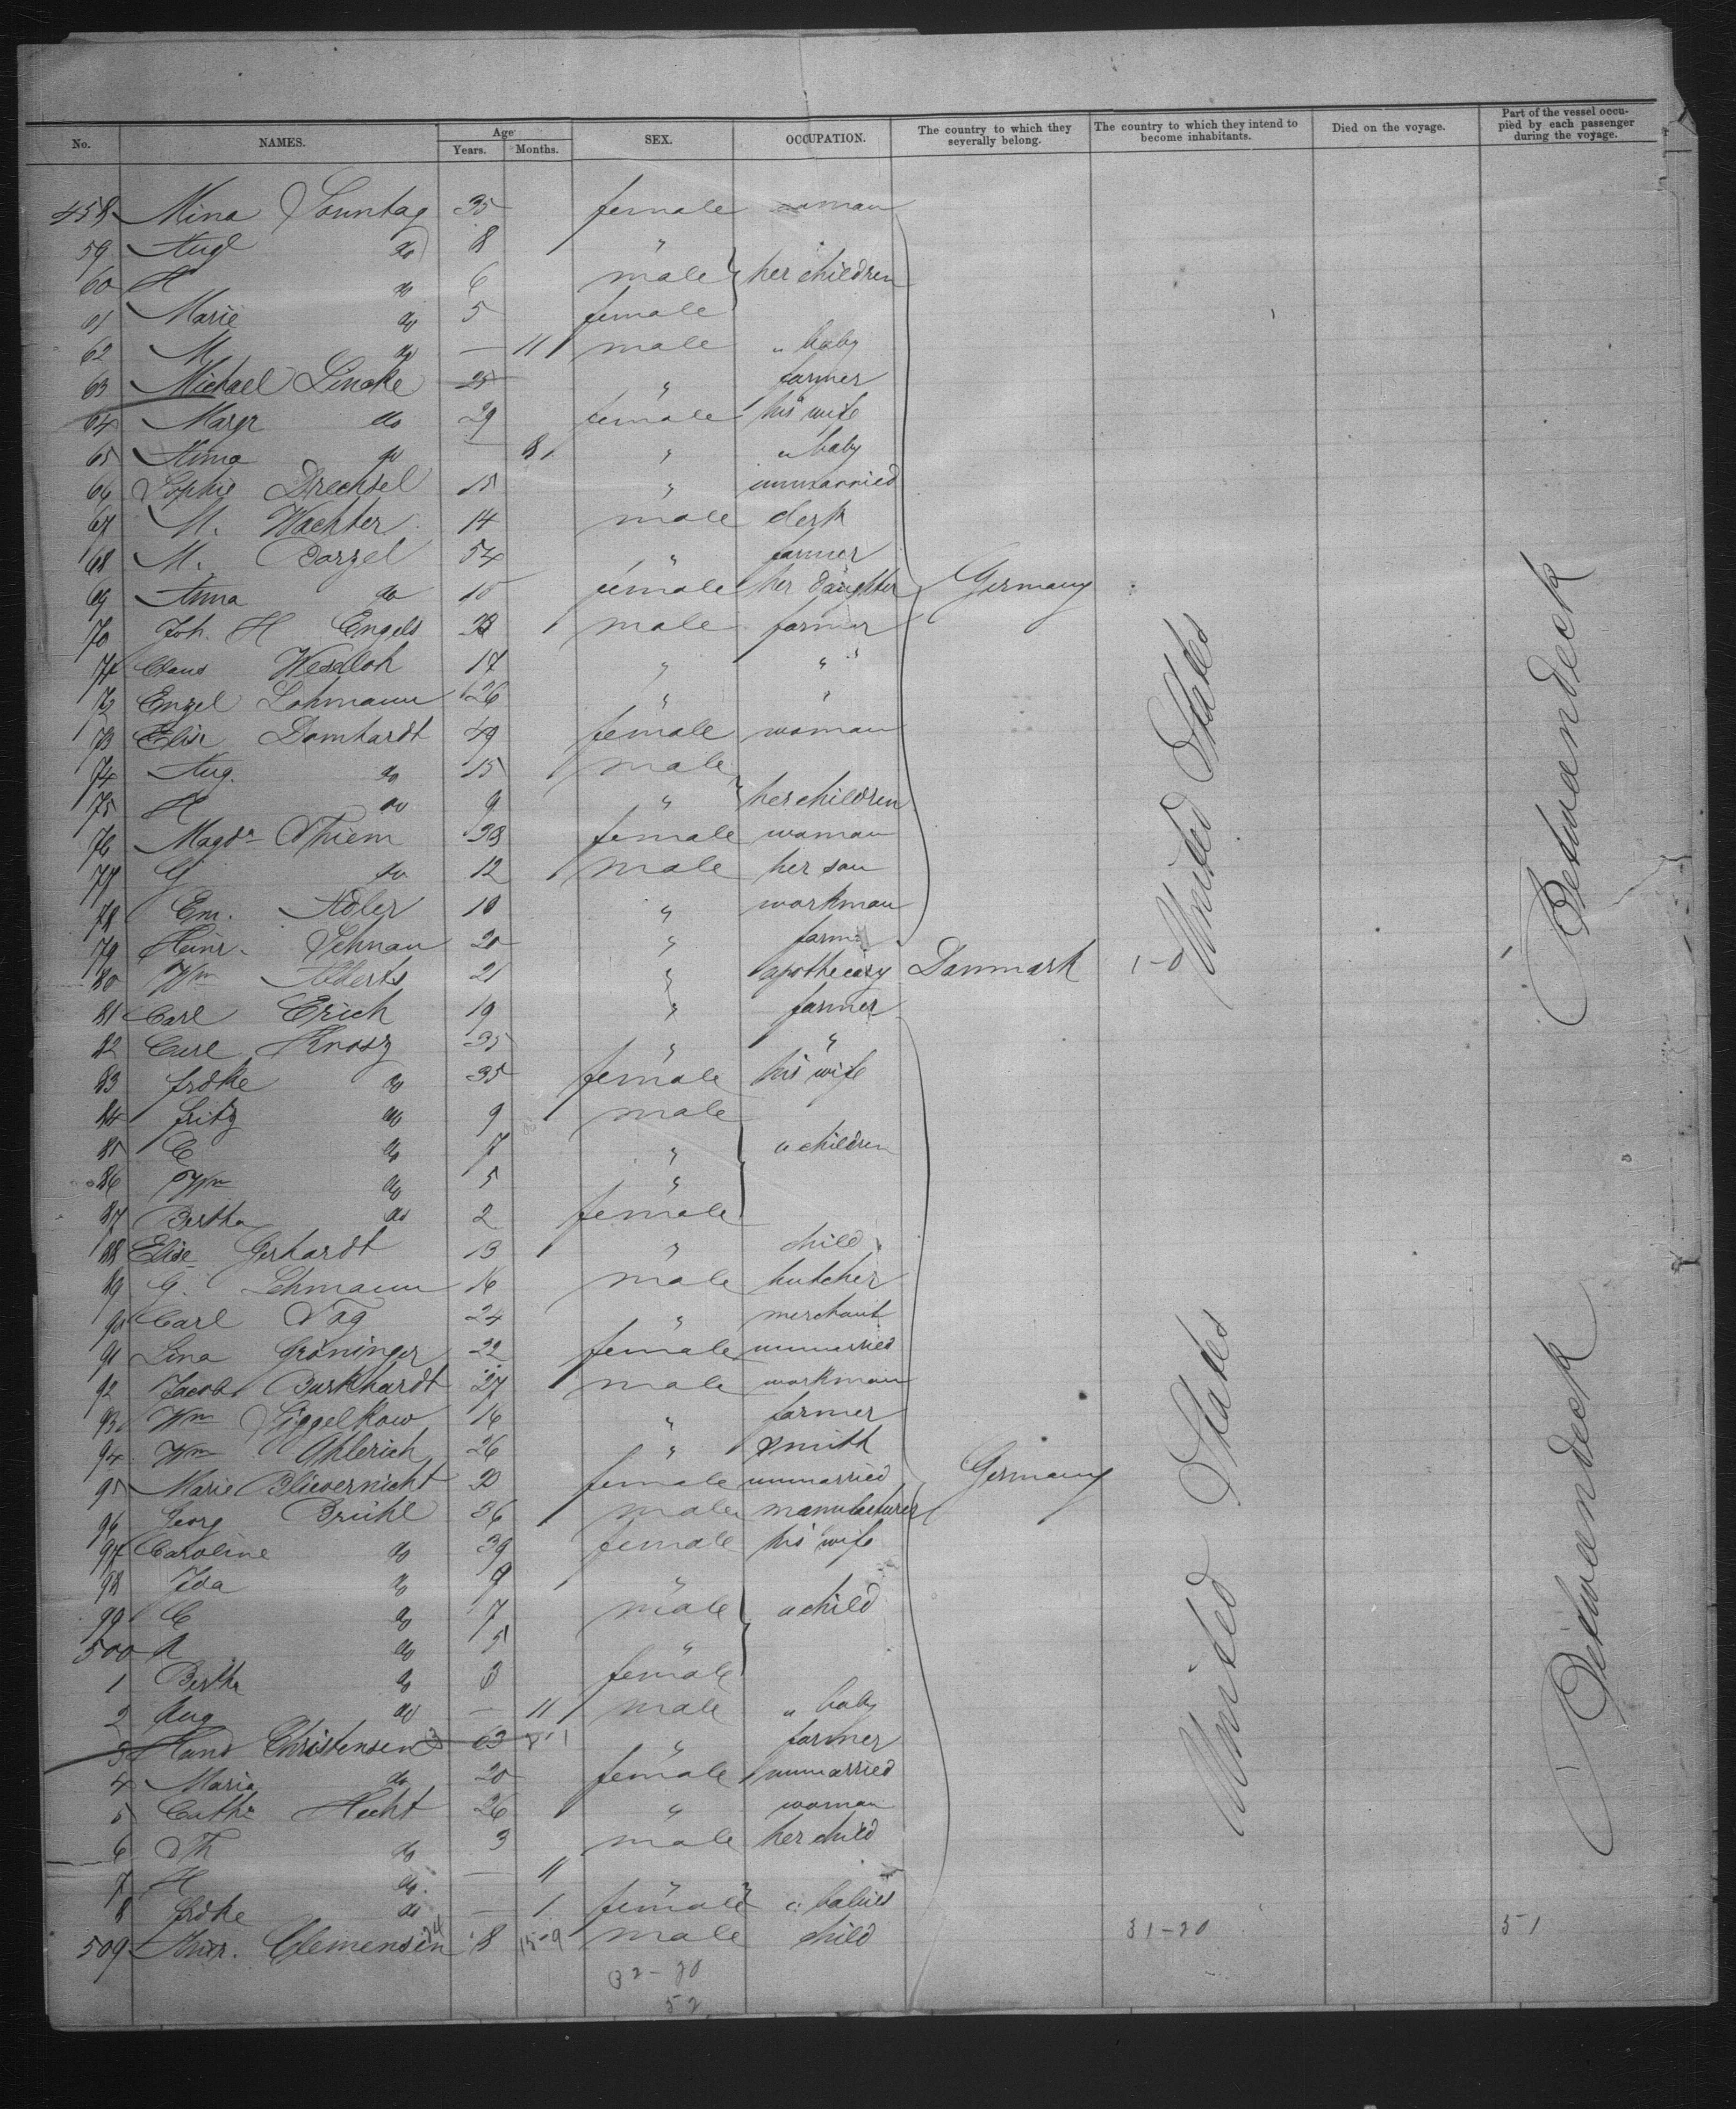 No. NAMES. Age Years. Months. SEX. OCCUPATION. The country to which they severally belong. The country to which they intend to become inhabitants. Died on the voyage. Part of the vessel occupied by each passenger during the voyage.
458 Mina Sonntag 35 female woman
59 Aug do 8 "
60 H do 6 male her children
61 Marie do 5 female
62 M do — 11 male " baby
63 Michael Lincke 25 " farmer
64 Margr do 29 female his wife
65 Anna do — 8 " " baby
66 Sophie Drechsel 15 " unmarried
67 M. Wachter 14 male clerk
68 M. 54 " farmer
69 Anna do 15 female her daughter Germany
70 Joh. H Engels male farmer
71 Claus Weseloh 17 " "
72 Engel Lohmann 26 " "
73 Elisr Domhardt 49 female woman
74 Aug. do 15 male
75 H do 9 " her children
76 Magda Thiem 38 female woman
77 G do 12 male her son
78 Em. Adler 10 " workman
79 Heinr. Schnau 20 " farmer
80 Wm Alberts 21 " apothecary Danmark 1-0 United States Betweendeck
81 Carl Erich 19 " farmer
82 Carl Knosz 35 " "
83 frdke do 35 female his wife
84 fritz do 9 male
85 C do 7 " " children
86 Wm do 5 "
87 Bertha do 2 female
88 Elise Gerhardt 13 " child
89 G. Lehmann 16 male butcher
90 Carl Tag 24 " merchant
91 Lina Gröninger 22 female unmarried
92 Jacob Burkhardt 27 male workman
93 Wm Siggelkow 16 " farmer
94 Wm Ahlerich 26 " smith
95 Marie Blievernicht female unmarried Germany
96 Georg Brühl 36 male manufacturer
97 Caroline do 39 female his wife
98 Ida do 9 "
99 C do 7 male " child
500 A do 5 "
1 Bertha do 3 female
2 Aug do — 11 male " baby
3 Hans Christensen 63 " farmer
4 Maria do 20 female unmarried
5 Cathr Hecht 26 " woman
6 Th do 3 male her child
7 H do — 11 "
8 frdke do — 1 female " babies United States Betweendeck
509 Andr. Clemensen 8 male child 31-20 51
32-20
52